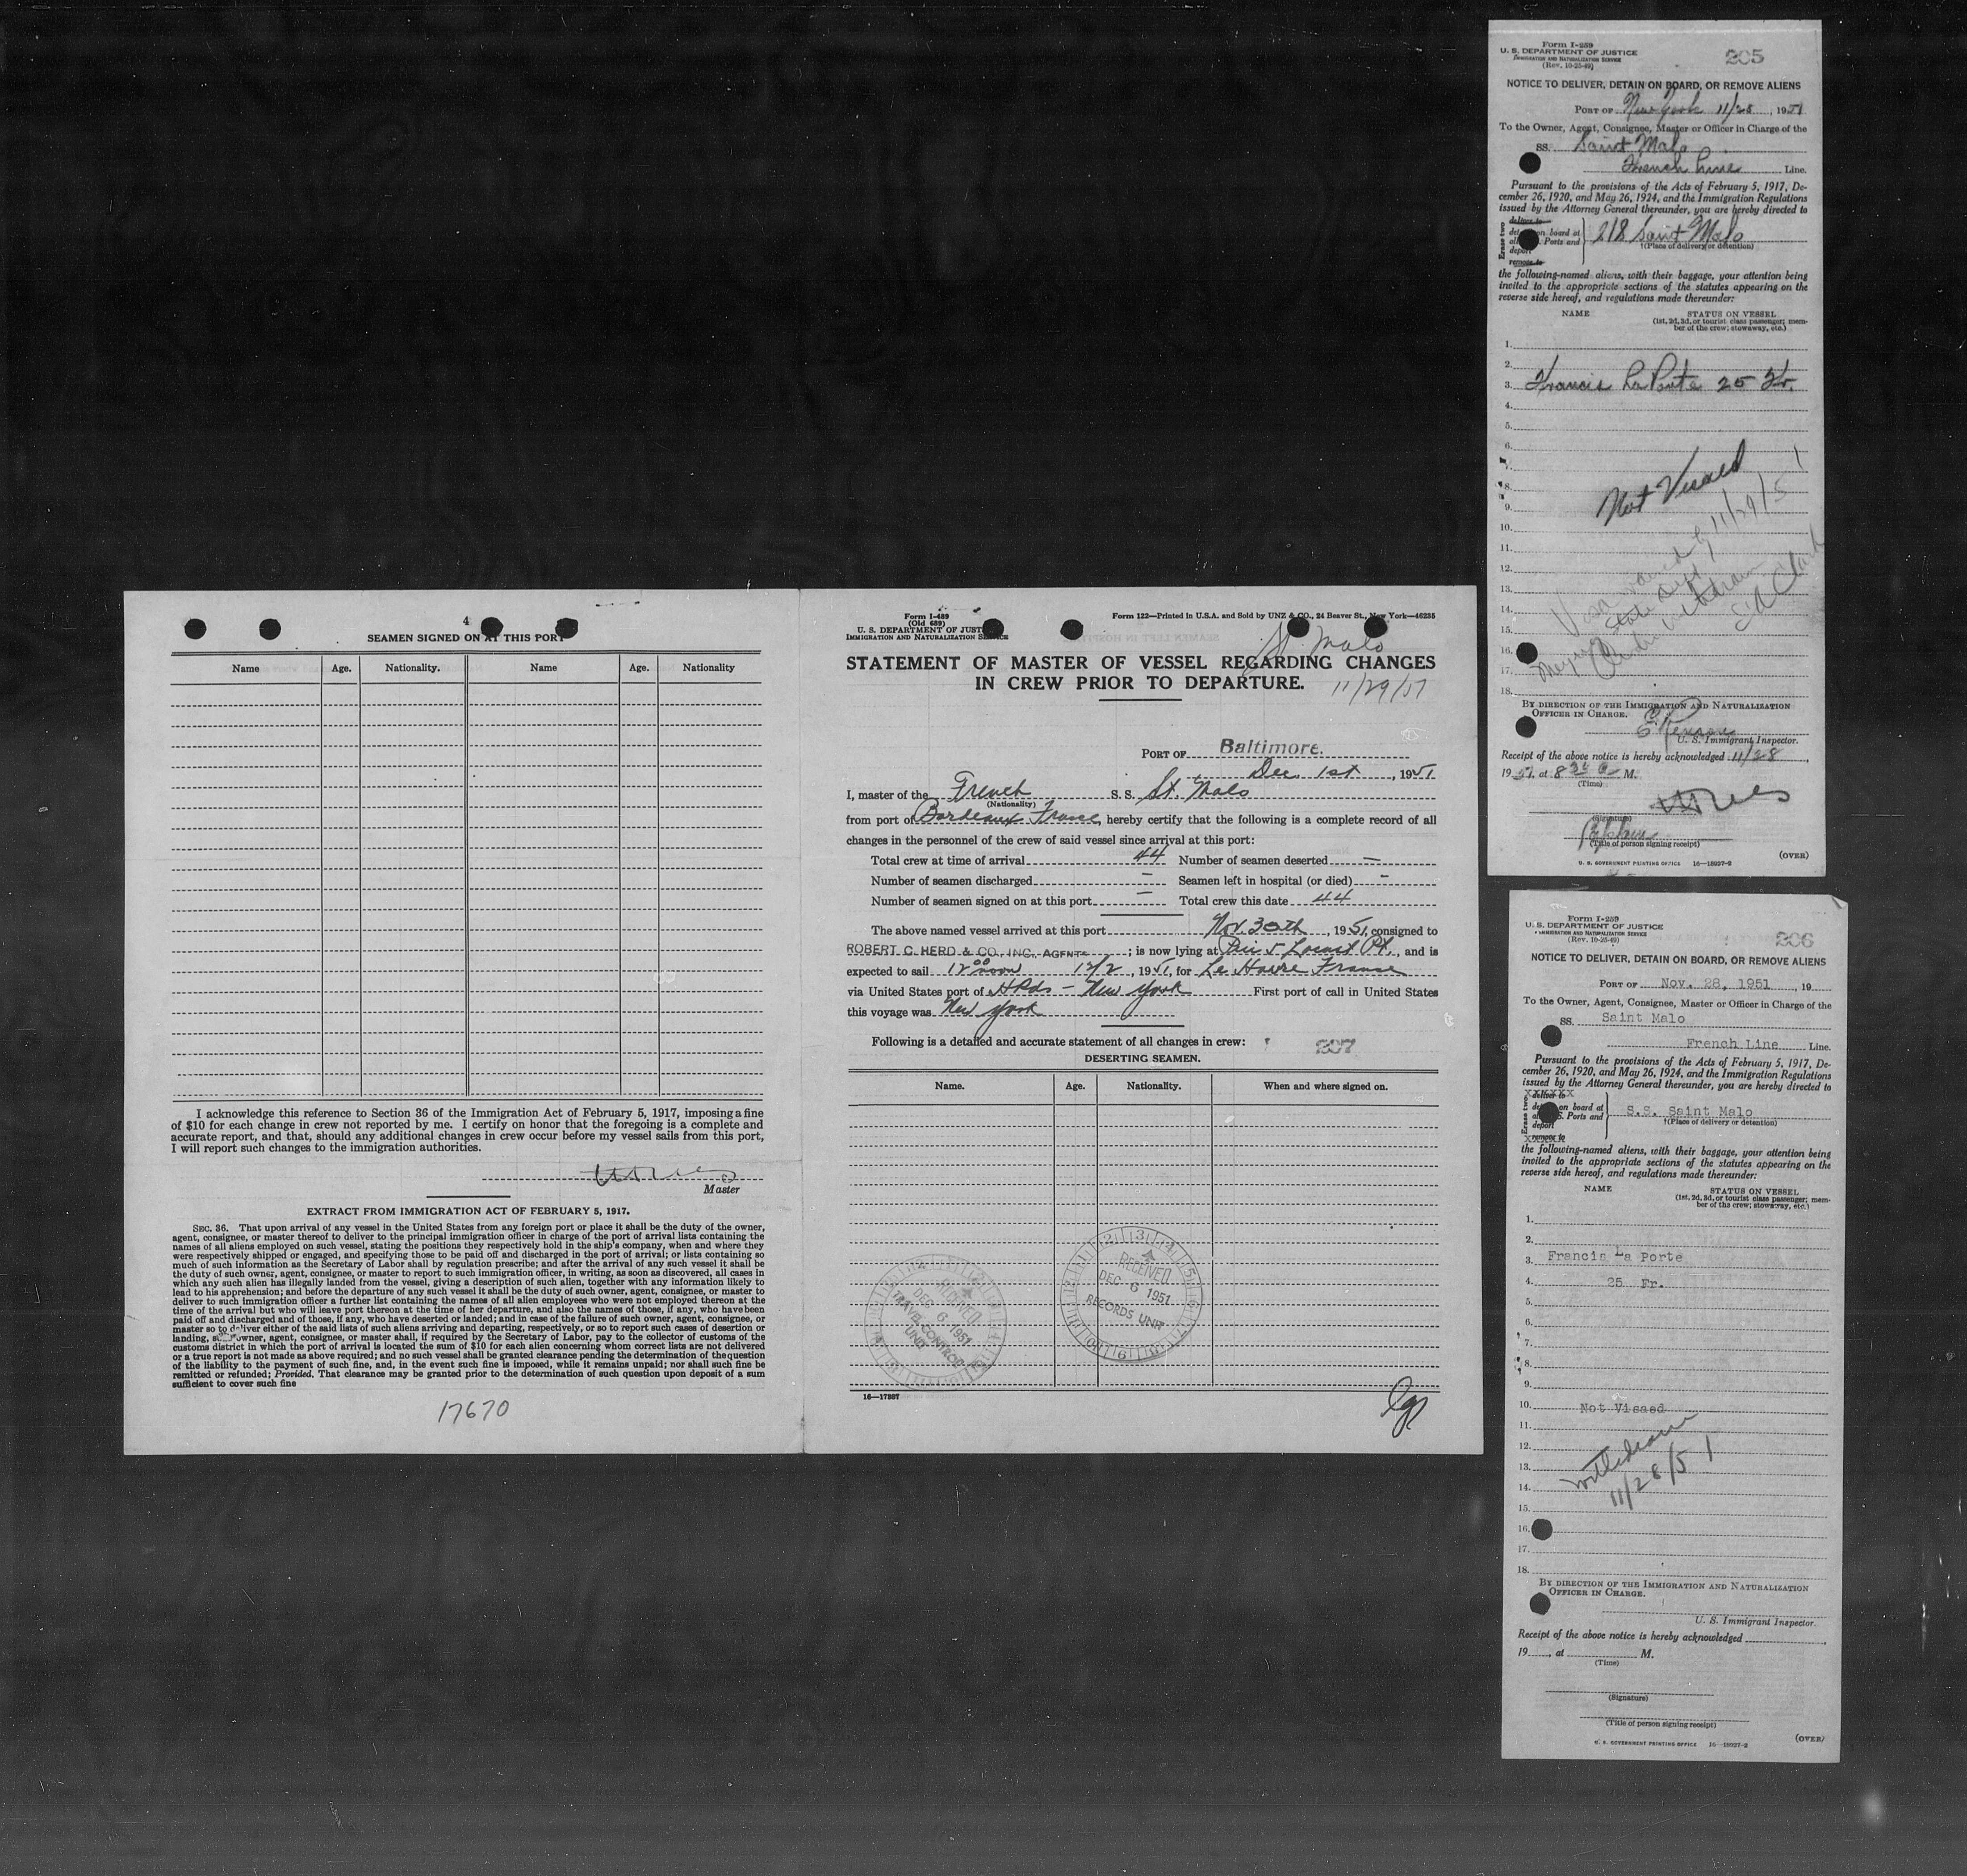 4
SEAMEN SIGNED ON AT THIS PORT
Name Age. Nationality. Name Age. Nationality
I acknowledge this reference to Section 36 of the Immigration Act of February 5, 1917, imposing a fine
of $10 for each change in crew not reported by me. I certify on honor that the foregoing is a complete and
accurate report, and that, should any additional changes in crew occur before my vessel sails from this port,
I will report such changes to the immigration authorities.
Master
EXTRACT FROM IMMIGRATION ACT OF FEBRUARY 5, 1917.
SEC. 36. That upon arrival of any vessel in the United States from any foreign port or place it shall be the duty of the owner,
agent, consignee, or master thereof to deliver to the principal immigration officer in charge of the port of arrival lists containing the
names of all aliens employed on such vessel, stating the positions they respectively hold in the ship's company, when and where they
were respectively shipped or engaged, and specifying those to be paid off and discharged in the port of arrival; or lists containing so
much of such information as the Secretary of Labor shall by regulation prescribe; and after the arrival of any such vessel it shall be
the duty of such owner, agent, consignee, or master to report to such immigration officer, in writing, as soon as discovered, all cases in
which any such alien has illegally landed from the vessel, giving a description of such alien, together with any information likely to
lead to his apprehension; and before the departure of any such vessel it shall be the duty of such owner, agent, consignee, or master to
deliver to such immigration officer a further list containing the names of all alien employees who were not employed thereon at the
time of the arrival but who will leave port thereon at the time of her departure, and also the names of those, if any, who have been
paid off and discharged and of those, if any, who have deserted or landed; and in case of the failure of such owner, agent, consignee, or
master so to deliver either of the said lists of such aliens arriving and departing, respectively, or so to report such cases of desertion or
landing, such owner, agent, consignee, or master shall, if required by the Secretary of Labor, pay to the collector of customs of the
customs district in which the port of arrival is located the sum of $10 for each alien concerning whom correct lists are not delivered
or a true report is not made as above required; and no such vessel shall be granted clearance pending the determination of the question
of the liability to the payment of such fine, and, in the event such fine is imposed, while it remains unpaid; nor shall such fine be
remitted or refunded; Provided, That clearance may be granted prior to the determination of such question upon deposit of a sum
sufficient to cover such fine
17670
Form I-489
(Old 689)
U. S. DEPARTMENT OF JUSTICE
IMMIGRATION AND NATURALIZATION SERVICE
Form 122—Printed in U.S.A. and Sold by UNZ & CO., 24 Beaver St., New York—46235
St. Malo
STATEMENT OF MASTER OF VESSEL REGARDING CHANGES
IN CREW PRIOR TO DEPARTURE.
11/29/51
PORT OF Baltimore.
Dec 1st, 1951.
I, master of the French S. S. St. Malo
(Nationality)
from port of Bordeaux France, hereby certify that the following is a complete record of all
changes in the personnel of the crew of said vessel since arrival at this port:
Total crew at time of arrival 44 Number of seamen deserted —
Number of seamen discharged — Seamen left in hospital (or died) -
Number of seamen signed on at this port — Total crew this date 44
The above named vessel arrived at this port Nov. 30th, 1951, consigned to
ROBERT C. HERD & CO., INC., AGENTS; is now lying at Pier 5 Locust Pt., and is
expected to sail 12 00 noon 12/2, 1951, for Le Havre France
via United States port of H Rds - New York First port of call in United States
this voyage was New York
Following is a detailed and accurate statement of all changes in crew: 207
DESERTING SEAMEN.
Name. Age. Nationality. When and where signed on.
RECEIVED
DEC 6 1951
TRAVEL CONTROL
UNIT
RECEIVED
DEC 6 1951
RECORDS UNIT
16—17287
Form I-259
U. S. DEPARTMENT OF JUSTICE
IMMIGRATION AND NATURALIZATION SERVICE
(Rev. 10-25-49)
205
NOTICE TO DELIVER, DETAIN ON BOARD, OR REMOVE ALIENS
PORT OF New York 11/28, 1951
To the Owner, Agent, Consignee, Master or Officer in Charge of the
SS. Saint Malo
French Line Line.
Pursuant to the provisions of the Acts of February 5, 1917, De-
cember 26, 1920, and May 26, 1924, and the Immigration Regulations
issued by the Attorney General thereunder, you are hereby directed to
Erase two
deliver to
on board at
Ports and
deport
remove to
218 Saint Malo
†(Place of delivery or detention)
the following-named aliens, with their baggage, your attention being
invited to the appropriate sections of the statutes appearing on the
reverse side hereof, and regulations made thereunder:
NAME STATUS ON VESSEL
(1st, 2d, 3d, or tourist class passenger; mem-
ber of the crew; stowaway, etc.)
1.
2.
3. Francis La Porte 25 Fr.
4.
5.
6.
7.
8.
9.
Not Visaed
10.
11.
12.
13.
14.
15.
16.
17.
18.
Visa waived by 11/29/51
State Dept
Order Withdrawn
BY DIRECTION OF THE IMMIGRATION AND NATURALIZATION
OFFICER IN CHARGE.
U. S. Immigrant Inspector.
Receipt of the above notice is hereby acknowledged 11/28,
1951, at 8 30 a M.
(Time)
(Signature)
Captain
(Title of person signing receipt)
U. S. GOVERNMENT PRINTING OFFICE 16—18927-2
(OVER)
Form I-259
U. S. DEPARTMENT OF JUSTICE
IMMIGRATION AND NATURALIZATION SERVICE
(Rev. 10-25-49)
206
NOTICE TO DELIVER, DETAIN ON BOARD, OR REMOVE ALIENS
PORT OF Nov. 28, 1951, 19
To the Owner, Agent, Consignee, Master or Officer in Charge of the
SS. Saint Malo
French Line Line.
Pursuant to the provisions of the Acts of February 5, 1917, De-
cember 26, 1920, and May 26, 1924, and the Immigration Regulations
issued by the Attorney General thereunder, you are hereby directed to
Erase two
deliver to
on board at
S. Ports and
deport
remove to
S.S. Saint Malo
†(Place of delivery or detention)
the following-named aliens, with their baggage, your attention being
invited to the appropriate sections of the statutes appearing on the
reverse side hereof, and regulations made thereunder:
NAME STATUS ON VESSEL
(1st, 2d, 3d, or tourist class passenger; mem-
ber of the crew; stowaway, etc.)
1.
2.
3. Francis La Porte
4. 25 Fr.
5.
6.
7.
8.
9.
10. Not Visaed
11.
12.
13.
withdrawn
11/28/51
14.
15.
16.
17.
18.
BY DIRECTION OF THE IMMIGRATION AND NATURALIZATION
OFFICER IN CHARGE.
U. S. Immigrant Inspector.
Receipt of the above notice is hereby acknowledged
19, at M.
(Time)
(Signature)
(Title of person signing receipt)
U. S. GOVERNMENT PRINTING OFFICE 16—18927-2
(OVER)